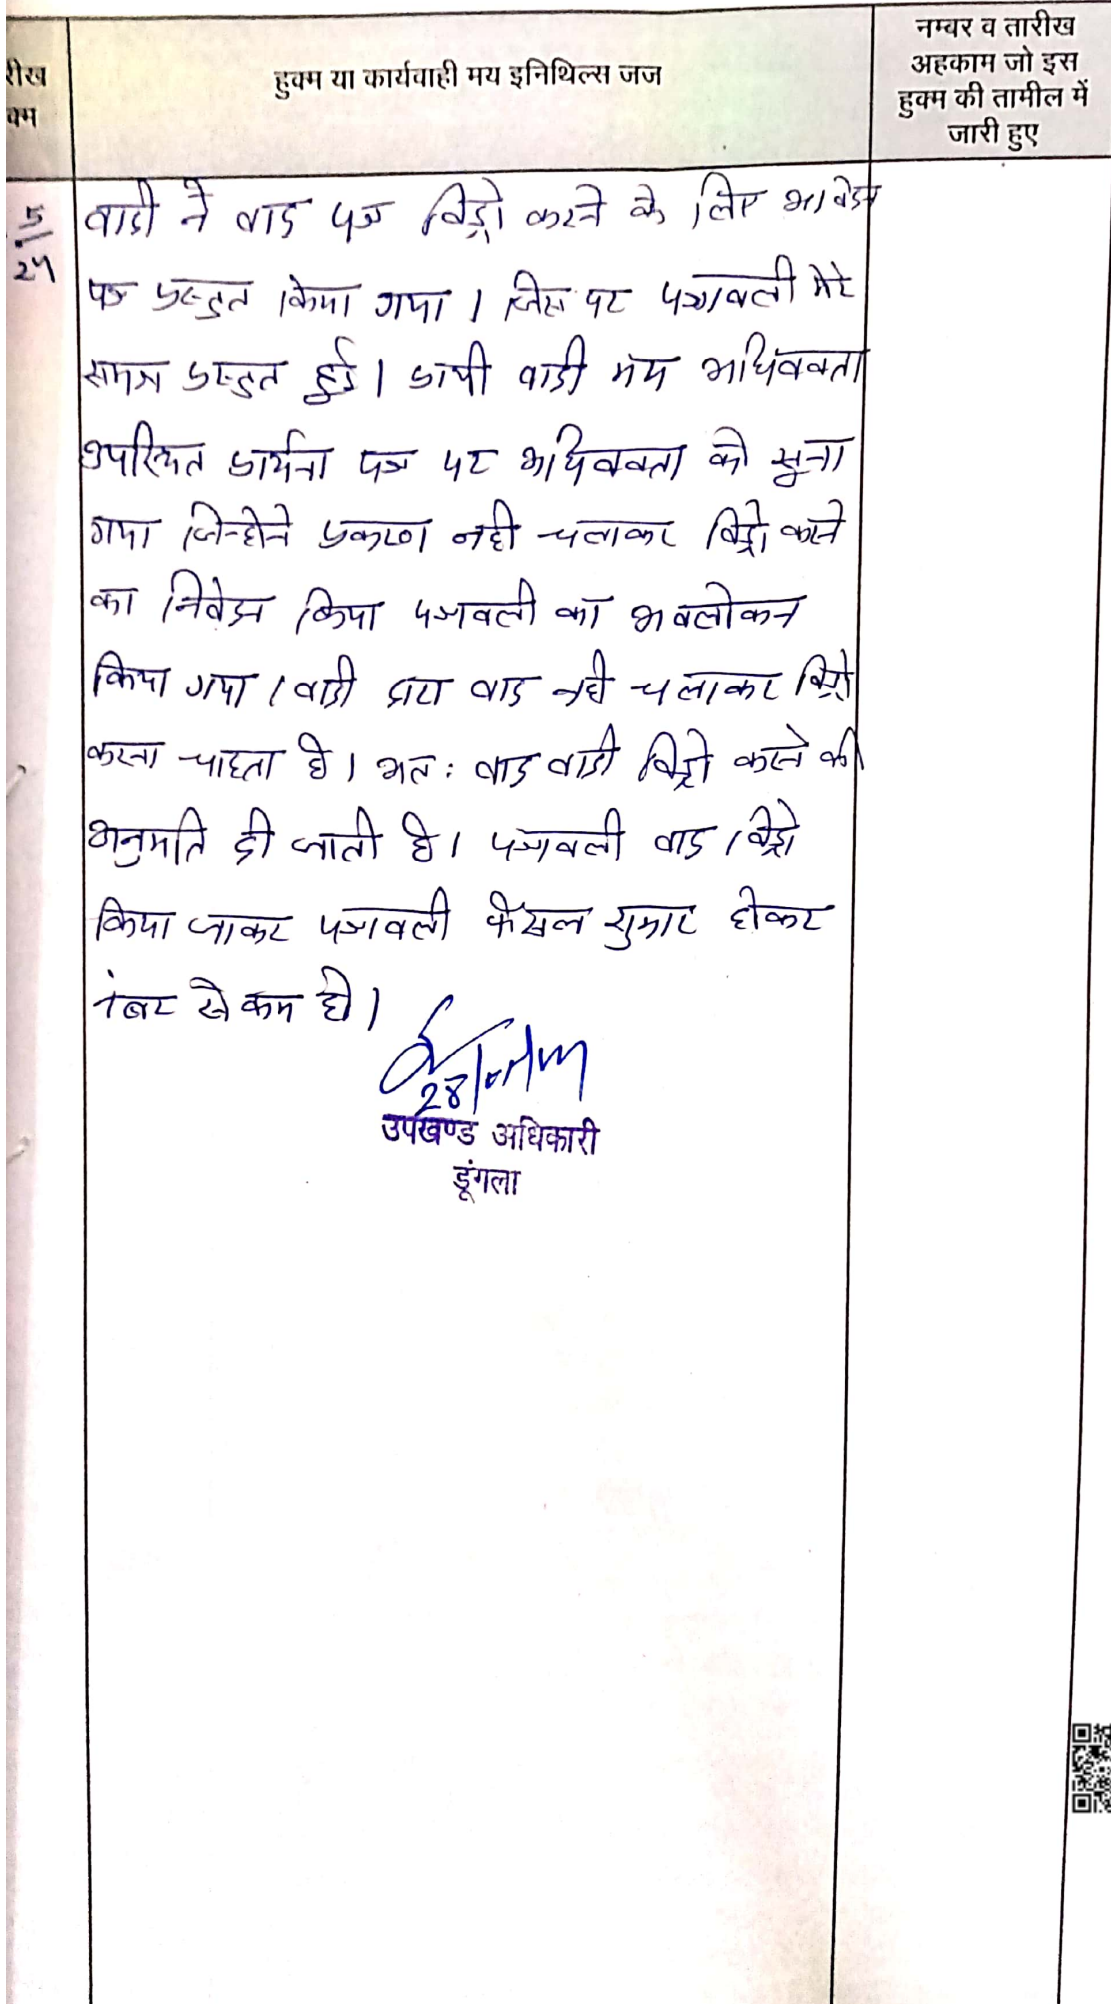 रीख
क्म
हुक्म या कार्यवाही मय इनिथिल्स जज
नम्बर व तारीख
अहकाम जो इस
हुक्म की तामील में
जारी हुए
5
24
वादी ने वाद पत्र विड्रो करने के लिए आवेदन
पत्र प्रस्तुत किया गया। जिस पर पत्रावली मेरे
समक्ष प्रस्तुत हुई। प्रार्थी वादी मय अधिवक्ता
उपस्थित प्रार्थना पत्र पर अधिवक्ता को सुना
गया जिन्होने प्रकरण नही चलाकर विड्रो करने
का निवेदन किया पत्रावली का अवलोकन
किया गया। वादी द्वारा वाद नही चलाकर विड्रो
करना चाहता है। अतः वाद वादी विड्रो करने की
अनुमति दी जाती है। पत्रावली वाद विड्रो
किया जाकर पत्रावली फैसल शुमार होकर
नंबर से कम हो।
28
उपखण्ड अधिकारी
डूंगला